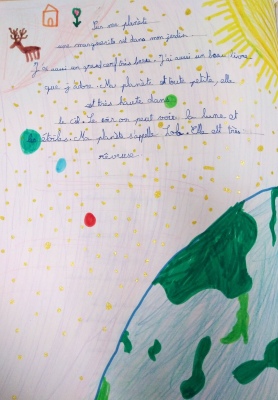 Sur ma planète
une marguerite est dans mon jardin.
J'ai aussi un grand cerf très beau. J'ai aussi un beau livre
que j'adore. Ma planète est toute petite, elle
est très haute dans
le ciel. Le soir on peut voir la lune et
les étoiles. Ma planète s'appelle Lola. Elle est très